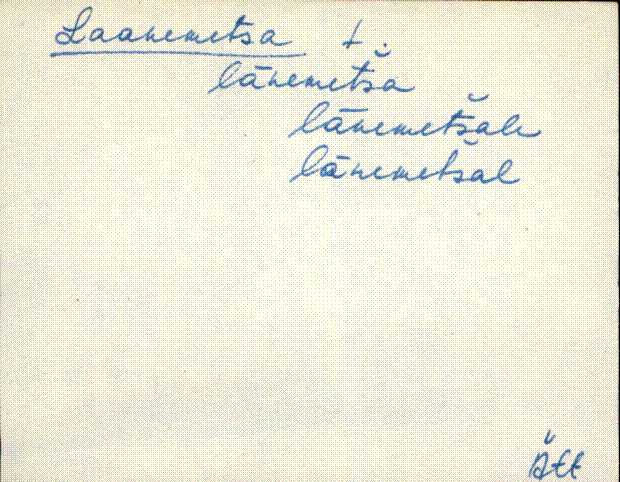 Laanemetsa t.
lānemetša
lānemetšale
lānemetšal